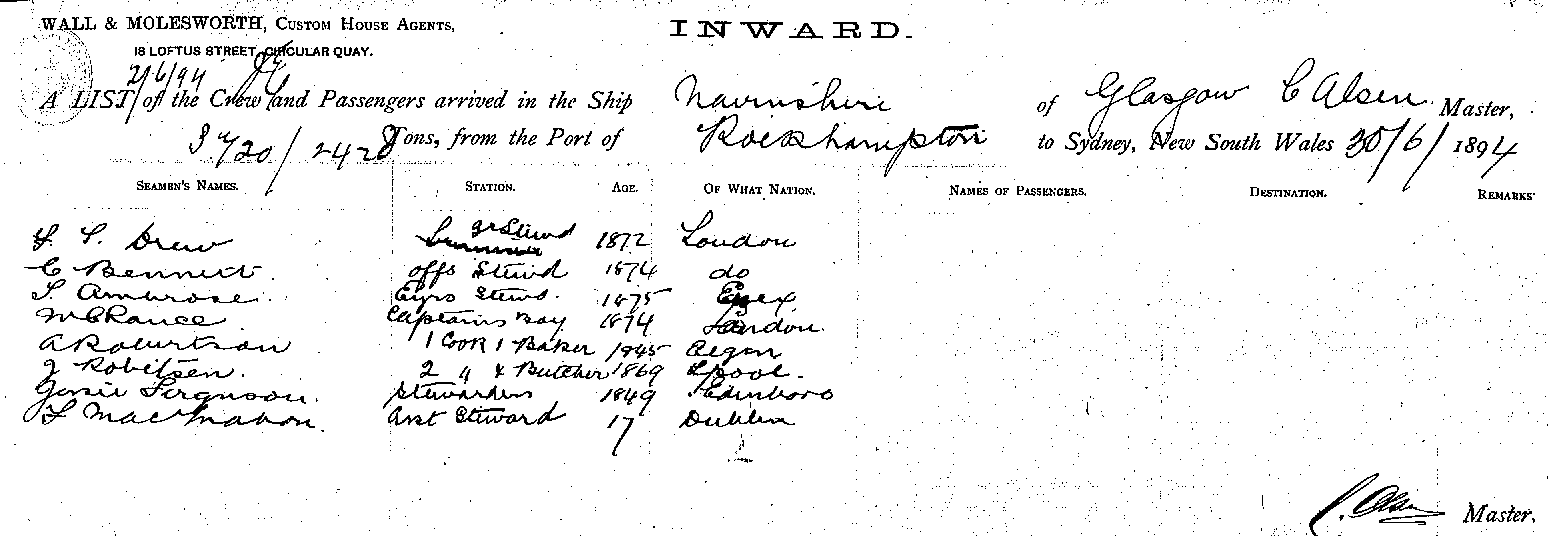 WALL & MOLESWORTH, CUSTOM HOUSE AGENTS,
INWARD.
18 LOFTUS STREET, CIRCULAR QUAY.
2/6/94
A LIST of the Crew and Passengers arrived in the Ship Nairnshire of Glasgow C Olsen Master,
3720/2428 Tons, from the Port of Rockhampton to Sydney, New South Wales 30/6/1894
SEAMEN'S NAMES. STATION. AGE. OF WHAT NATION. NAMES OF PASSENGERS. DESTINATION. REMARKS
Drew gr Stewd 1872 London
C Bennett. offs Stewd 1874 do
S. Ambrose. Egrs Stewd. 1875 Essex
W C Rance Captains Boy 1874 London.
A Robertson 1 Cook & Baker 1845
J Robitsen. 2 " & Butcher 1869 Lpool.
Jessie Ferguson. Stewardess 1849 Edinboro
MacMahon. Asst Steward 17 Dublin
C. Olsen Master.